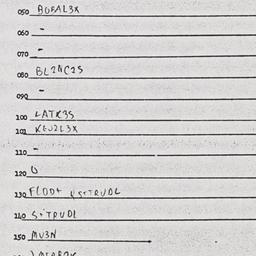 050 BUFAL3X
060 -
070 -
080 BL2NC2S
090 -
100 LATK3S
101 KEU2L3X
110 -
120 O
130 FLOD+ S+TRUDL
140 S+TRUDL
150 MU3N